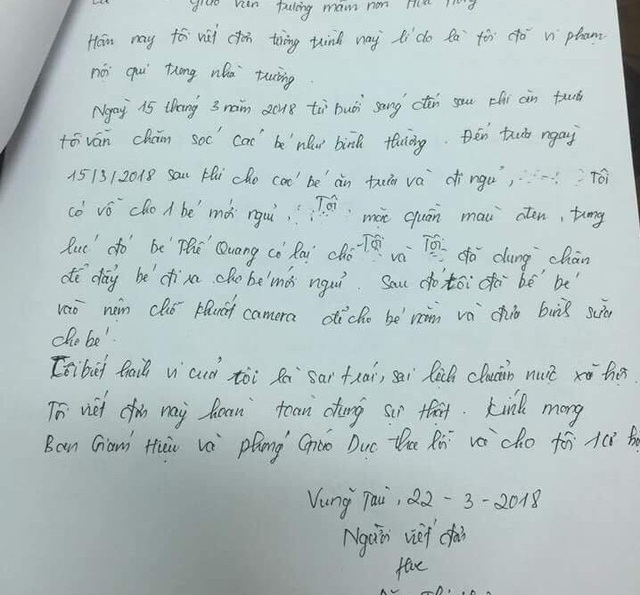 giáo viên trường mầm non Hoa Hồng
Hôm nay tôi viết đơn tường trình này lí do là tôi đã vi phạm
nội qui trong nhà trường.
Ngày 15 tháng 3 năm 2018 từ buổi sáng đến sau khi ăn trưa
tôi vẫn chăm sóc các bé như bình thường. Đến trưa ngày
15/3/2018 sau khi cho các bé ăn trưa và đi ngủ, Tôi
có vỗ cho 1 bé mới ngủ, Tôi mặc quần màu đen, trong
lúc đó bé Thế Quang có lại chỗ Tôi và Tôi đã dùng chân
để đẩy bé đi xa cho bé mới ngủ. Sau đó tôi đã bế bé
vào nệm chỗ khuất camera để cho bé nằm và đưa bình sữa
cho bé.
Tôi biết hành vi của tôi là sai trái, sai lệch chuẩn mực xã hội.
Tôi viết đơn này hoàn toàn đúng sự thật. Kính mong
Ban Giám Hiệu và phòng Giáo Dục tha lỗi và cho tôi 1 cơ hộ
Vũng Tàu, 22 - 3 - 2018
Người viết đơn